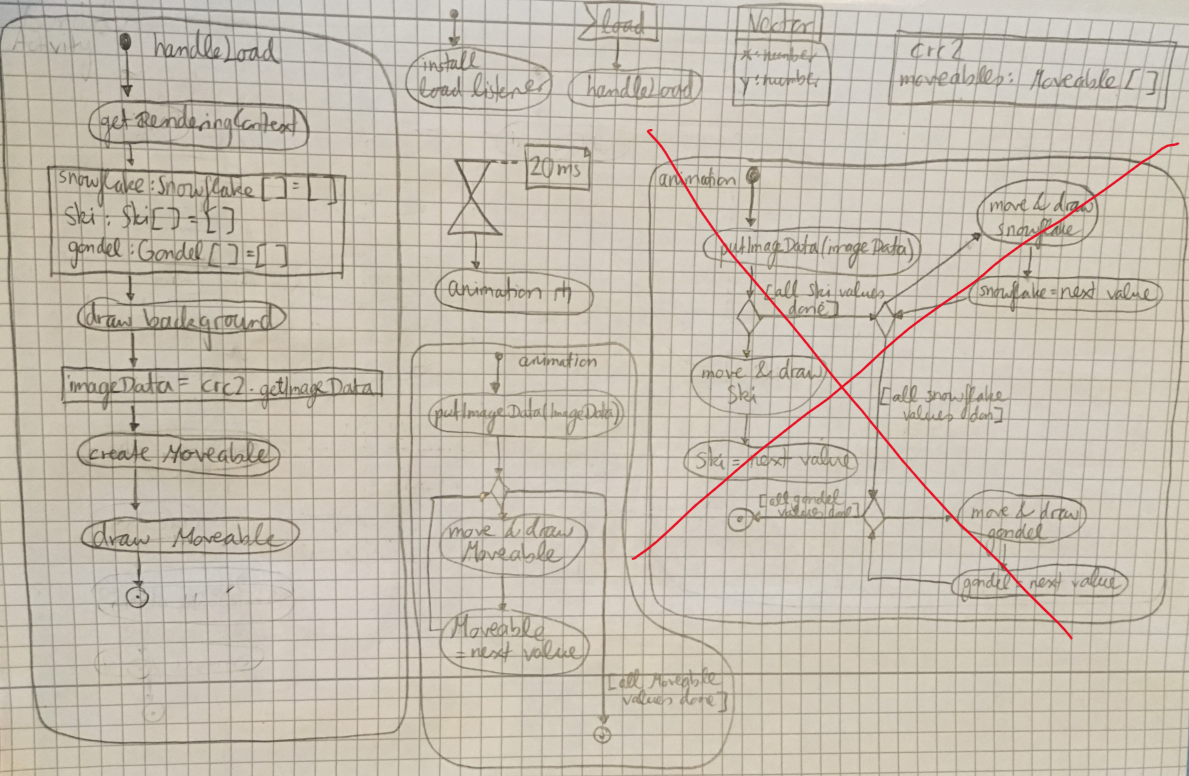 Activit
handleLoad
getRenderingContext
snowflake: Snowflake [] = []
Ski: Ski[] = []
gondel: Gondel [] = []
draw background
imageData = crc2.getImageData
create Moveable
draw Moveable
install
load listener
load
handleLoad
Vector
x: number
y: number
crc2
moveables: Moveable []
20 ms
animation
animation
putImageData(ImageData)
move & draw
Moveable
Moveable
= next value
[all Moveable
values done]
animation
putImageData(imageData)
[all Ski values
done]
move & draw
Ski
Ski = next value
move & draw
snowflake
snowflake = next value
[all snowflake
values don]
[all gondel
values done]
move & draw
gondel
gondel = next value